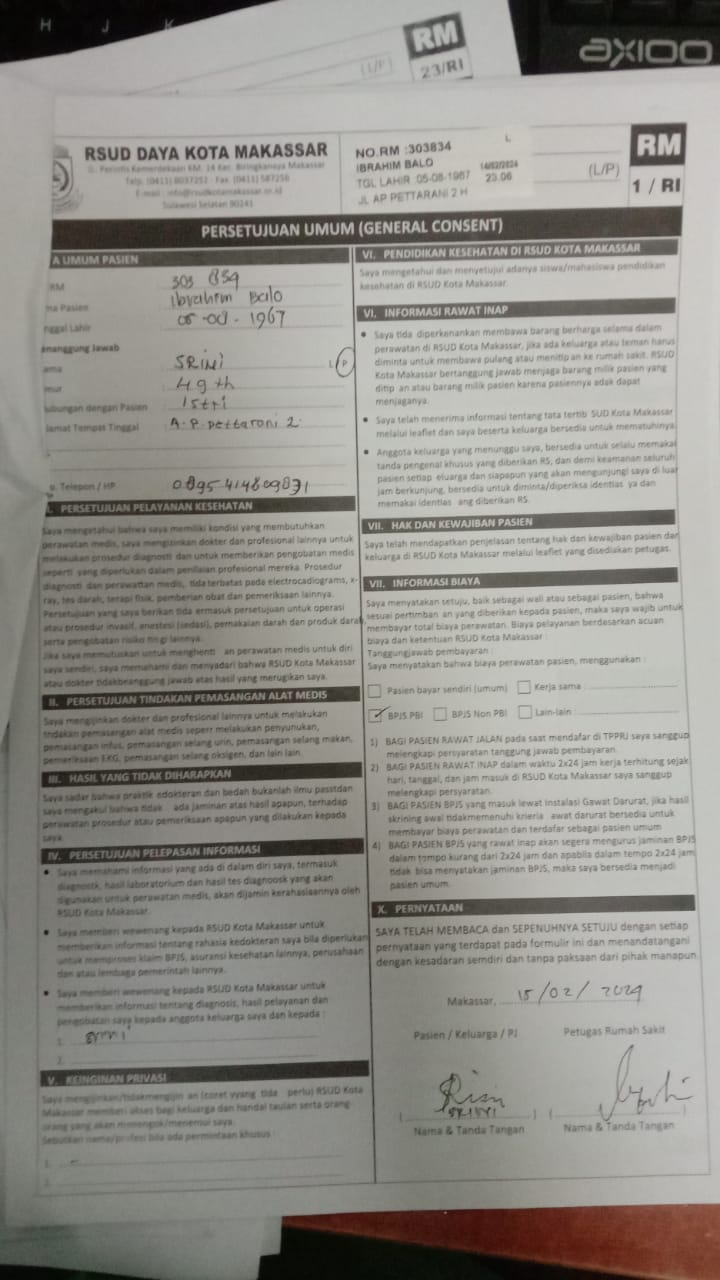 H J K
RM
23/RI
(L/P)
AXIOO
RSUD DAYA KOTA MAKASSAR
Jl. Perintis Kemerdekaan KM. 14 Kec. Biringkanaya Makassar
Telp. (0411) 8037252 Fax. (0411) 587256
E-mail : info@rsudkotamakassar.or.id
Sulawesi Selatan 90241
NO.RM :303834 L
IBRAHIM BALO 14/02/2024
TGL LAHIR 05-08-1967 23.06
JL AP PETTARANI 2 H
(L/P)
RM
1 / RI
PERSETUJUAN UMUM (GENERAL CONSENT)
A UMUM PASIEN
RM 303 834
ma Pasien Ibrahim Balo
nggal Lahir 05-08-1967
enanggung Jawab
ama SRINI L P
mur 49 th
ubungan dengan Pasien Istri
lamat Tempat Tinggal A.P. pettaroni 2
o. Telepon / HP 0895414809831
I. PERSETUJUAN PELAYANAN KESEHATAN
Saya mengetahui bahwa saya memiliki kondisi yang membutuhkan
perawatan medis, saya mengizinkan dokter dan profesional lainnya untuk
melakukan prosedur diagnosti dan untuk memberikan pengobatan medis
seperti yang diperlukan dalam penilaian profesional mereka. Prosedur
diagnosti dan perawattan medis, tida terbatas pada electrocadiograms, x-
ray, tes darah, terapi fisik, pemberian obat dan pemeriksaan lainnya.
Persetujuan yang saya berikan tida ermasuk persetujuan untuk operasi
atau prosedur invasif, anestesi (sedasi), pemakaian darah dan produk darah,
serta pengobatan risiko tin gi lainnya.
Jika saya memutuskan untuk menghenti an perawatan medis untuk diri
saya sendiri, saya memahami dan menyadari bahwa RSUD Kota Makassar
atau dokter tidakbeanggung jawab atas hasil yang merugikan saya.
II. PERSETUJUAN TINDAKAN PEMASANGAN ALAT MEDIS
Saya mengijinkan dokter dan profesional lainnya untuk melakukan
tindakan pemasangan alat medis seperr melakukan penyunukan,
pemasangan infus, pemasangan selang urin, pemasangan selang makan,
pemeriksaan EKG, pemasangan selang oksigen, dan lain lain.
III. HASIL YANG TIDAK DIHARAPKAN
Saya sadar bahwa praktik edokteran dan bedah bukanlah ilmu passtdan
saya mengakui bahwa tidak ada jaminan atas hasil apapun, terhadap
perawatan prosedur atau pemeriksaan apapun yang dilakukan kepada
saya.
IV. PERSETUJUAN PELEPASAN INFORMASI
• Saya memahami informasi yang ada di dalam diri saya, termasuk
diagnostk, hasil laboratorium dan hasil tes diagnoosk yang akan
digunakan untuk perawatan medis, akan dijamin kerahasiaannya oleh
RSUD Kota Makassar.
• Saya memberi wewenang kepada RSUD Kota Makassar untuk
memberikan informasi tentang rahasia kedokteran saya bila diperlukan
untuk memproses klaim BPJS, asuransi kesehatan lainnya, perusahaan
dan atau lembaga pemerintah lainnya.
• Saya memberi wewenang kepada RSUD Kota Makassar untuk
memberikan informasi tentang diagnosis, hasil pelayanan dan
pengobatan saya kepada anggota keluarga saya dan kepada :
1. srini
2.
V. KEINGINAN PRIVASI
Saya mengijinkan/tidakmengijin an (coret vyang tida perlu) RSUD Kota
Makassar memberi akses bagi keluarga dan handai taulan serta orang-
orang yang akan menengok/menemui saya.
Sebutkan nama/profesi bila ada permintaan khusus :
1. -
2.
VI. PENDIDIKAN KESEHATAN DI RSUD KOTA MAKASSAR
Saya mengetahui dan menyetujui adanya siswa/mahasiswa pendidikan
kesehatan di RSUD Kota Makassar.
VI. INFORMASI RAWAT INAP
• Saya tida diperkenankan membawa barang berharga selama dalam
perawatan di RSUD Kota Makassar, jika ada keluarga atau teman harus
diminta untuk membawa pulang atau menitip an ke rumah sakit. RSUD
Kota Makassar bertanggung jawab menjaga barang milik pasien yang
ditip an atau barang milik pasien karena pasiennya adak dapat
menjaganya.
• Saya telah menerima informasi tentang tata tertib SUD Kota Makassar
melalui leaflet dan saya beserta keluarga bersedia untuk mematuhinya.
• Anggota keluarga yang menunggu saya, bersedia untuk selalu memakai
tanda pengenal khusus yang diberikan RS, dan demi keamanan seluruh
pasien setiap eluarga dan siapapun yang akan mengunjungi saya di luar
jam berkunjung, bersedia untuk diminta/diperiksa identias ya dan
memakai identias ang diberikan RS.
VII. HAK DAN KEWAJIBAN PASIEN
Saya telah mendapatkan penjelasan tentang hak dan kewajiban pasien dan
keluarga di RSUD Kota Makassar melalui leaflet yang disediakan petugas.
VII. INFORMASI BIAYA
Saya menyatakan setuju, baik sebagai wali atau sebagai pasien, bahwa
sesuai pertimban an yang diberikan kepada pasien, maka saya wajib untuk
membayar total biaya perawatan. Biaya pelayanan berdasarkan acuan
biaya dan ketentuan RSUD Kota Makassar :
Tanggungjawab pembayaran :
Saya menyatakan bahwa biaya perawatan pasien, menggunakan :
Pasien bayar sendiri (umum) Kerja sama :
✓ BPJS PBI BPJS Non PBI Lain-lain :
1) BAGI PASIEN RAWAT JALAN pada saat mendafar di TPPRJ saya sanggup
melengkapi persyaratan tanggung jawab pembayaran.
2) BAGI PASIEN RAWAT INAP dalam waktu 2x24 jam kerja terhitung sejak
hari, tanggal, dan jam masuk di RSUD Kota Makassar saya sanggup
melengkapi persyaratan.
3) BAGI PASIEN BPJS yang masuk lewat Instalasi Gawat Darurat, jika hasil
skrining awal tidakmemenuhi krieria awat darurat bersedia untuk
membayar biaya perawatan dan terdafar sebagai pasien umum
4) BAGI PASIEN BPJS yang rawat inap akan segera mengurus jaminan BPJS
dalam tempo kurang dari 2x24 jam dan apabila dalam tempo 2x24 jam
tidak bisa menyatakan jaminan BPJS, maka saya bersedia menjadi
pasien umum.
X. PERNYATAAN
SAYA TELAH MEMBACA dan SEPENUHNYA SETUJU dengan setiap
pernyataan yang terdapat pada formulir ini dan menandatangani
dengan kesadaran semdiri dan tanpa paksaan dari pihak manapun.
Makassar, 15/02/2024
Pasien / Keluarga / PJ Petugas Rumah Sakit
SRINI
Nama & Tanda Tangan Nama & Tanda Tangan